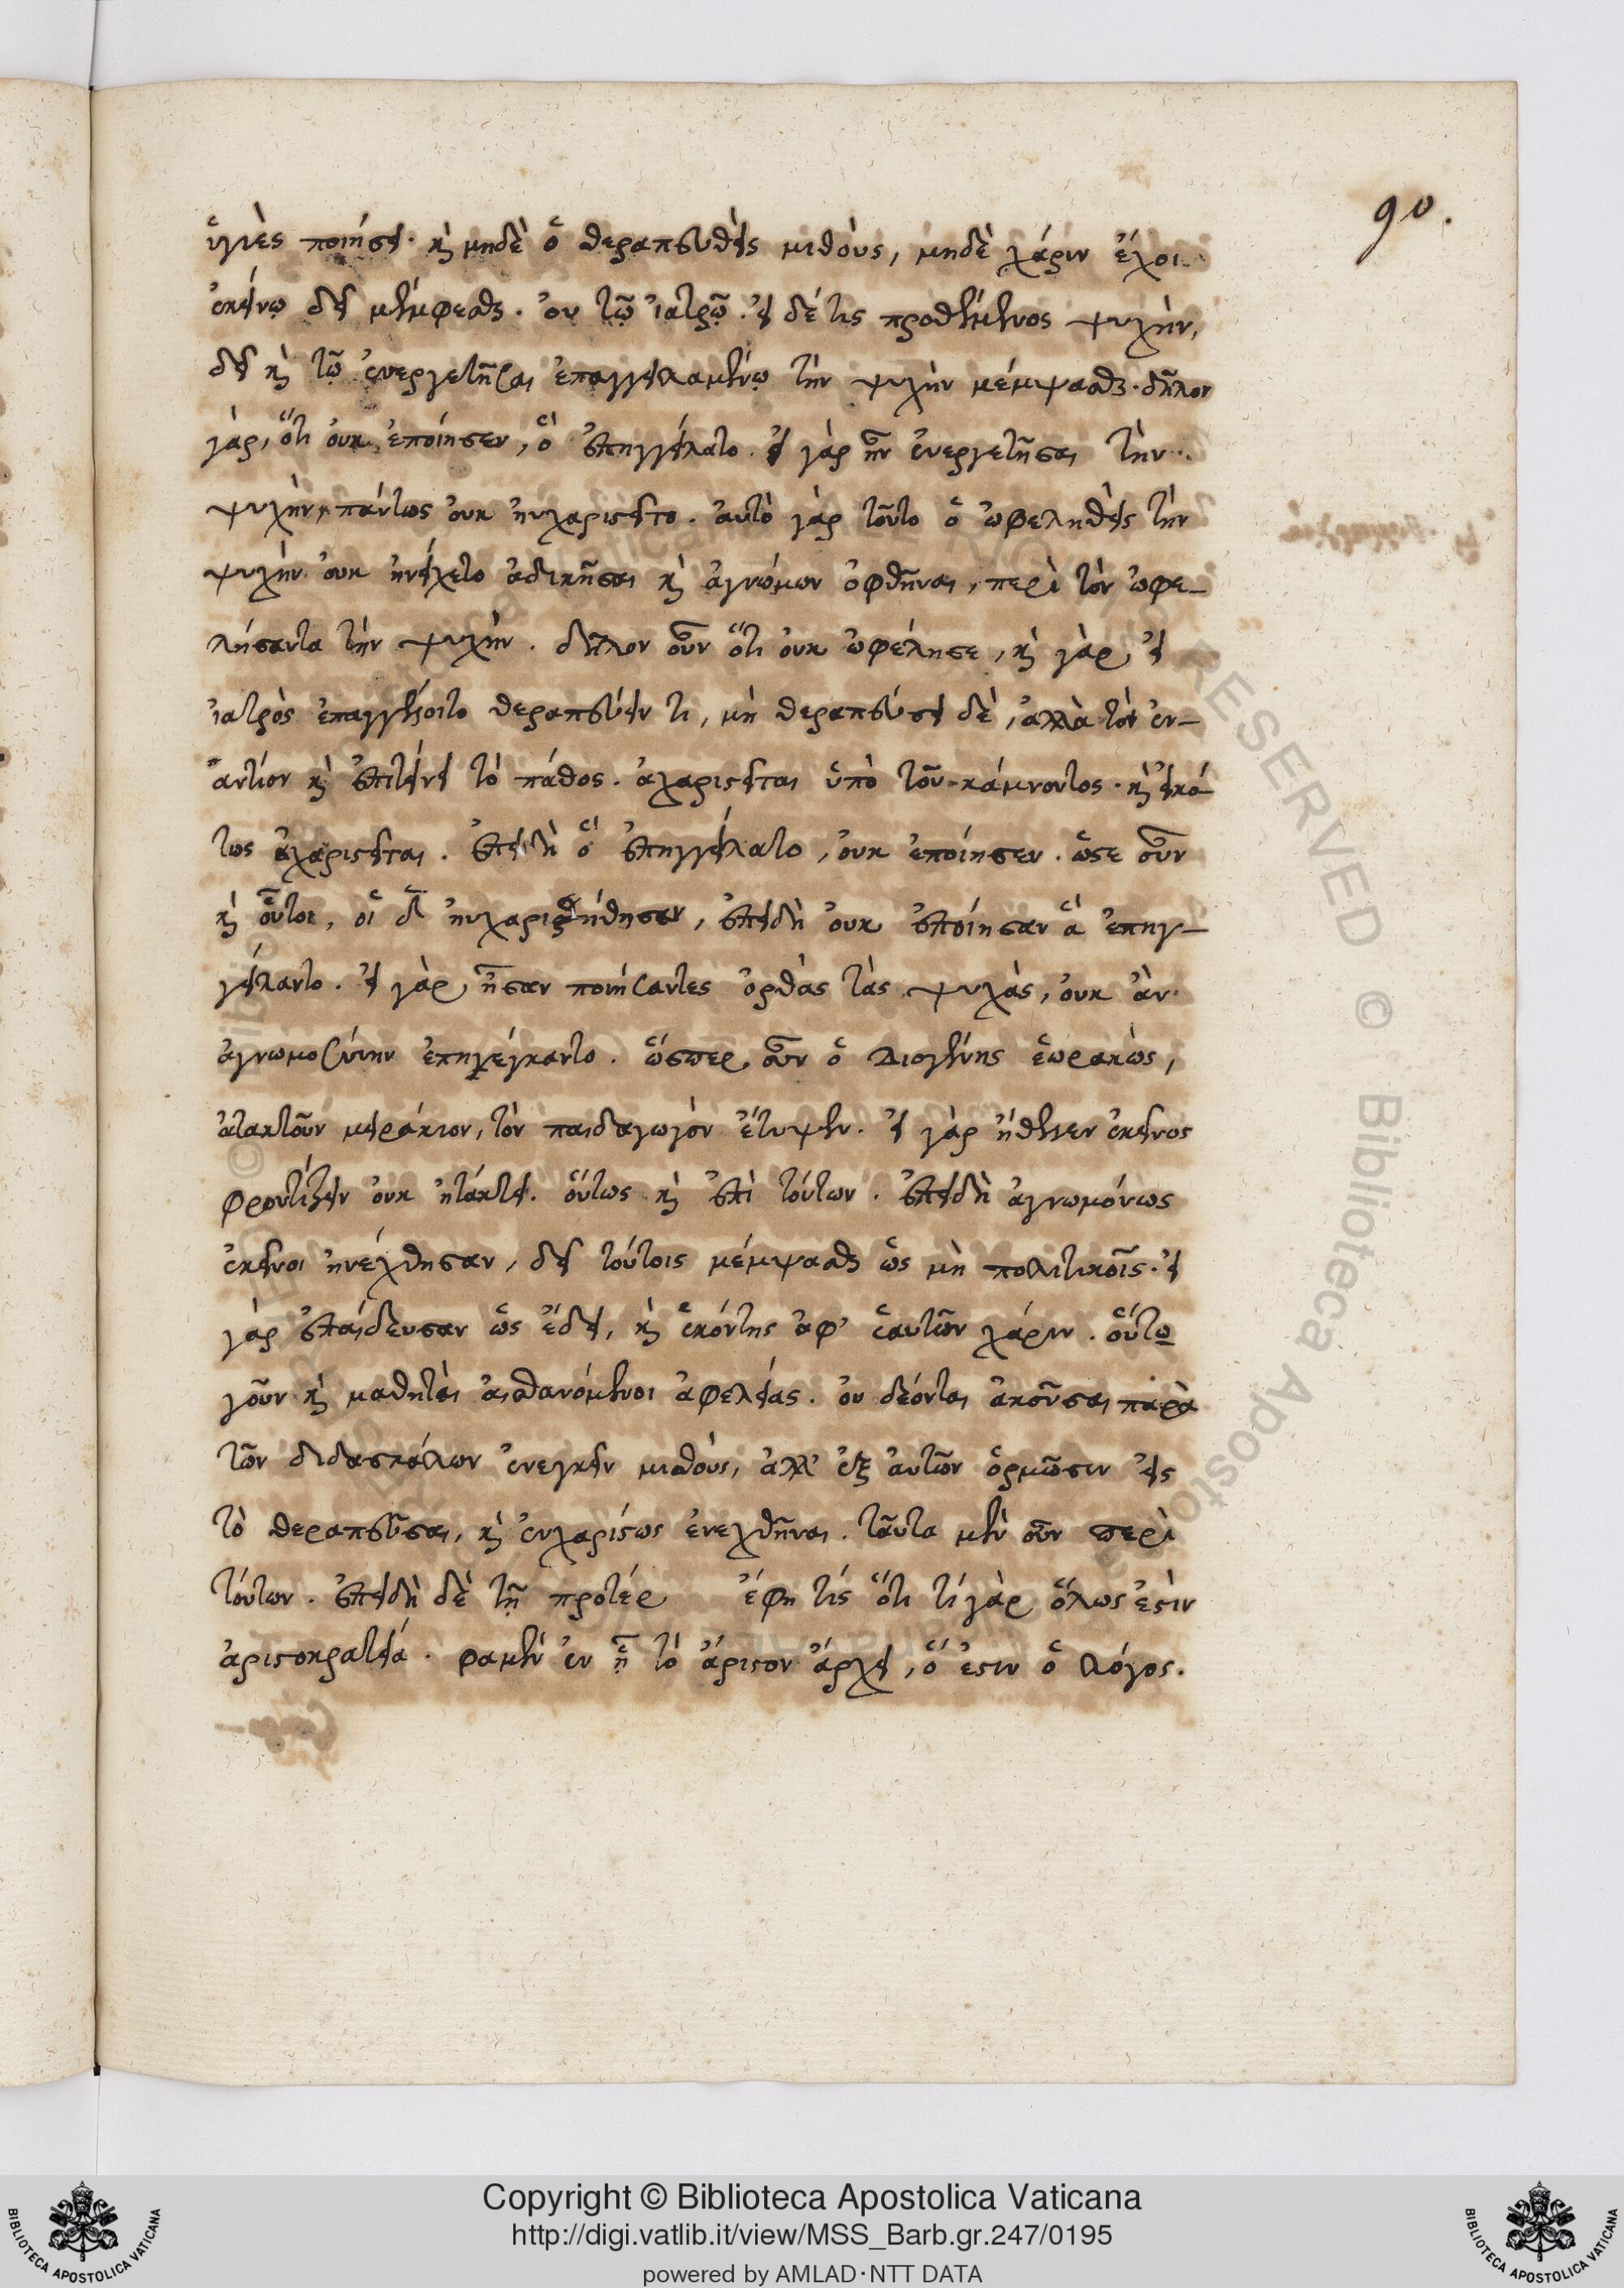 90.
ὑγιὲς ποιήσει· καὶ μηδὲ ὁ θεραπευθεὶς μισθοὺς, μηδὲ χάριν ἔχοι
ἐκείνῳ δεῖ μέμφεσθαι. οὐ τῷ ἰατρῷ. εἰ δέ τις προθέμενος ψυχὴν,
δεῖ καὶ τῷ ἐυεργετῆσαι ἐπαγγειλαμένῳ τὴν ψυχὴν μέμψασθαι. δῆλον
γὰρ, ὅτι ὀυκ ἐποίησεν, ὃ ἐπηγγείλατο. εἰ γὰρ ἦν ἐυεργετῆσαι τὴν
ψυχὴν, πάντως ὀυκ ἠυχαριστεῖτο. ἀυτὸ γὰρ τοῦτο ὁ ὠφεληθεὶς τὴν
ψυχὴν ὀυκ ἠνείχετο ἀδικῆσαι καὶ ἀγνώμων ὀφθῆναι, περὶ τὸν ὠφε-
λήσαντα τὴν ψυχήν. δῆλον οὖν ὅτι ὀυκ ὠφέλησε, καὶ γὰρ εἰ
ἰατρὸς ἐπαγγέλοιτο θεραπεύειν τι, μὴ θεραπεύσει δὲ, ἀλλὰ τὸν ἐν-
αντίον καὶ ἐπιτείνει τὸ πάθος. ἀχαριστεῖται ὑπὸ τοῦ κάμνοντος. καὶ εἰκό
τως ἀχαριστεῖται. ἐπειδὴ ὃ ἐπηγγείλατο, ὀυκ ἐποίησεν. ὥστε οὖν
καὶ οὗτοι, οἱ δὲ ἠυχαριστήθησαν, ἐπειδὴ ὀυκ ἐποίησαν ἃ ἐπηγ-
γείλαντο. εἰ γὰρ ἦσαν ποιήσαντες ὀρθὰς τὰς ψυχὰς, ὀυκ ἂν
ἀγνωμοσύνην ἐπηνέγκαντο. ὥσπερ οὖν ὁ Διογένης ἑωρακὼς,
ἀτακτοῦν μειράκιον, τὸν παιδαγωγὸν ἔτυψεν. εἰ γὰρ ἤθελεν ἐκεῖνος
φροντίζειν ὀυκ ἠτάκτει. οὕτως καὶ ἐπὶ τούτων. ἐπειδὴ ἀγνωμόνως
ἐκεῖνοι ἠνέχθησαν, δεῖ τούτοις μέμψασθαι ὡς μὴ πολιτικοῖς. εἰ
γὰρ ἐπαίδευσαν ὡς ἔδει, καὶ ἑκόντης ἀφ' ἑαυτῶν χάριν. οὕτω
γοῦν καὶ μαθηταὶ ἀισθανόμενοι ὠφελείας. ὀυ δέονται ἀκοῦσαι παρὰ
τῶν διδασκάλων ἐνεγκεῖν μισθοὺς, ἀλλ' ἐξ ἀυτῶν ὁρμῶσιν εἰς
τὸ θεραπεῦσαι, καὶ ἐυχαρίστως ἐνεχθῆναι. ταῦτα μὲν οὖν περὶ
τούτων. ἐπειδὴ δὲ τῇ προτέρ ἔφη τίς ὅτι τί γὰρ ὅλως ἐστὶν
ἀριστοκρατεία. φαμὲν ἐν ᾗ τὸ ἄριστον ἄρχει, ὅ ἐστιν ὁ λόγος.
Copyright © Biblioteca Apostolica Vaticana
http://digi.vatlib.it/view/MSS_Barb.gr.247/0195
powered by AMLAD·NTT DATA